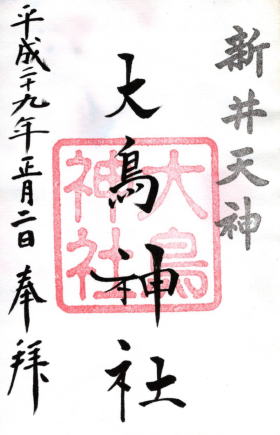 新井天神
大鳥神社
大鳥神社
平成二十九年正月二日 奉拜